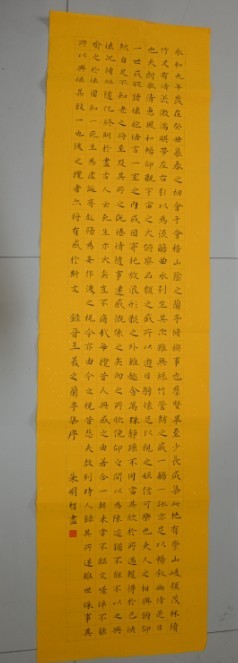 永和九年歲在癸丑暮春之初會于會稽山陰之蘭亭脩禊事也羣賢畢至少長咸集此地有崇山峻嶺茂林脩
竹又有清流激湍映帶左右引以為流觴曲水列坐其次雖無絲竹管弦之盛一觴一詠亦足以暢敘幽情是日
也天朗氣清惠風和暢仰觀宇宙之大俯察品類之盛所以遊目騁懷足以極視聽之娛信可樂也夫人之相與俯仰
一世或取諸懷抱悟言一室之內或因寄所託放浪形骸之外雖趣舍萬殊靜躁不同當其欣於所遇暫得於己快
然自足不知老之將至及其所之既倦情隨事遷感慨係之矣向之所欣俛仰之間以為陳迹猶不能不以之興
懷況脩短隨化終期於盡古人云死生亦大矣豈不痛哉每攬昔人興感之由若合一契未嘗不臨文嗟悼不能
喻之於懷固知一死生為虛誕齊彭殤為妄作後之視今亦由今之視昔悲夫故列敘時人錄其所述雖世殊事異
所以興懷其致一也後之攬者亦將有感於斯文 錄晉王羲之蘭亭集序
朱明智書